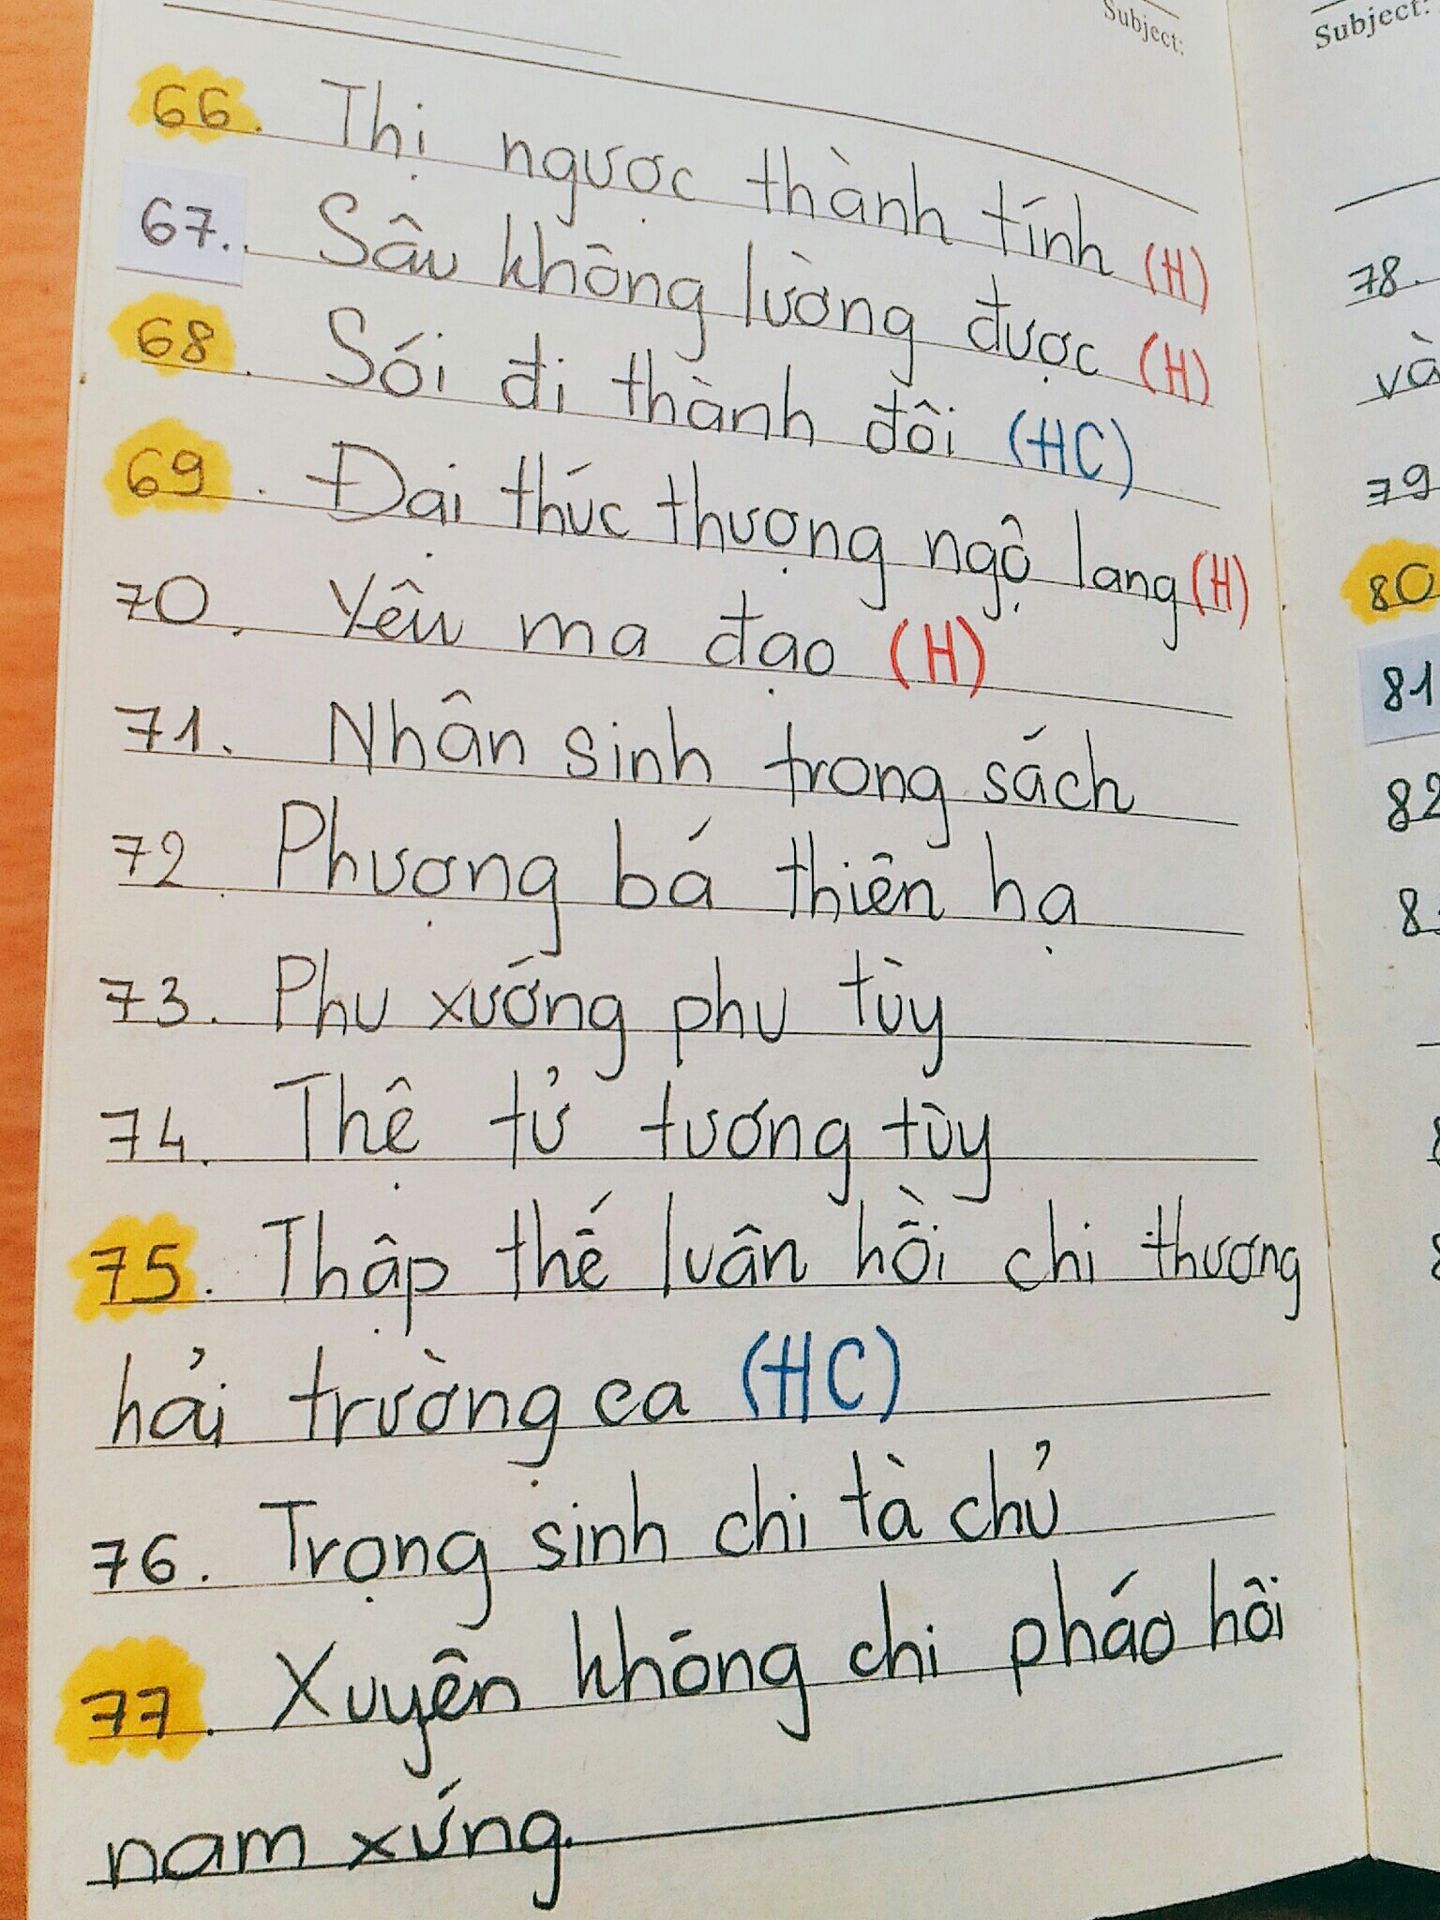 Subject:
66. Thị ngược thành tính (H)
67. Sâu không lường được (H)
68. Sói đi thành đôi (HC)
69. Đại thúc thượng ngộ lang (H)
70. Yêu ma đạo (H)
71. Nhân sinh trong sách
72. Phượng bá thiên hạ
73. Phu xướng phu tùy
74. Thệ tử tương tùy
75. Thập thế luân hồi chi thương
hải trường ca (HC)
76. Trọng sinh chi tà chủ
77. Xuyên không chi pháo hôi
nam xứng.
Subject:
78.
và
79
80
81
82